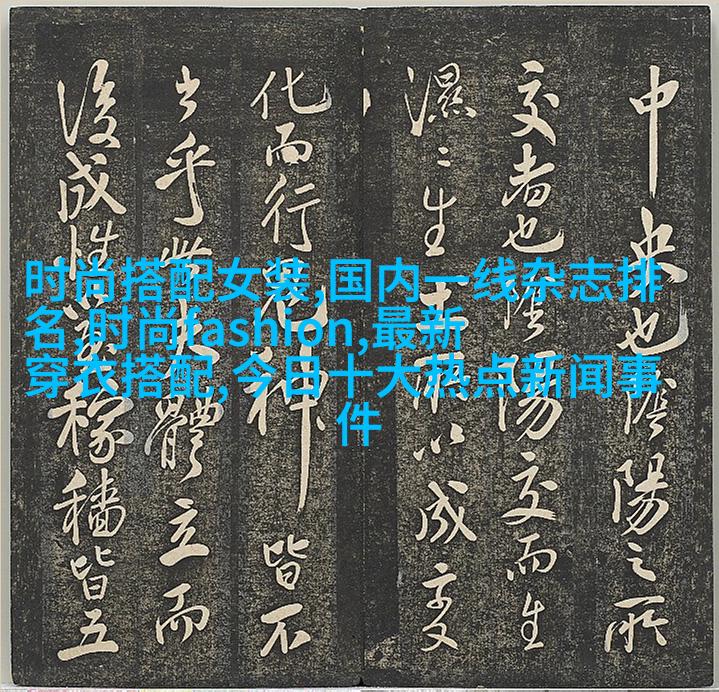 时尚搭配女装,国内一线杂志排
名,时尚fashion,最新
穿衣搭配,今日十大热点新闻事
件
中央也陰陽之所
交者也陰陽交而生
濕〻生土所以成变
化而行鬼神皆不
乎體立而
後成性稼穡皆五